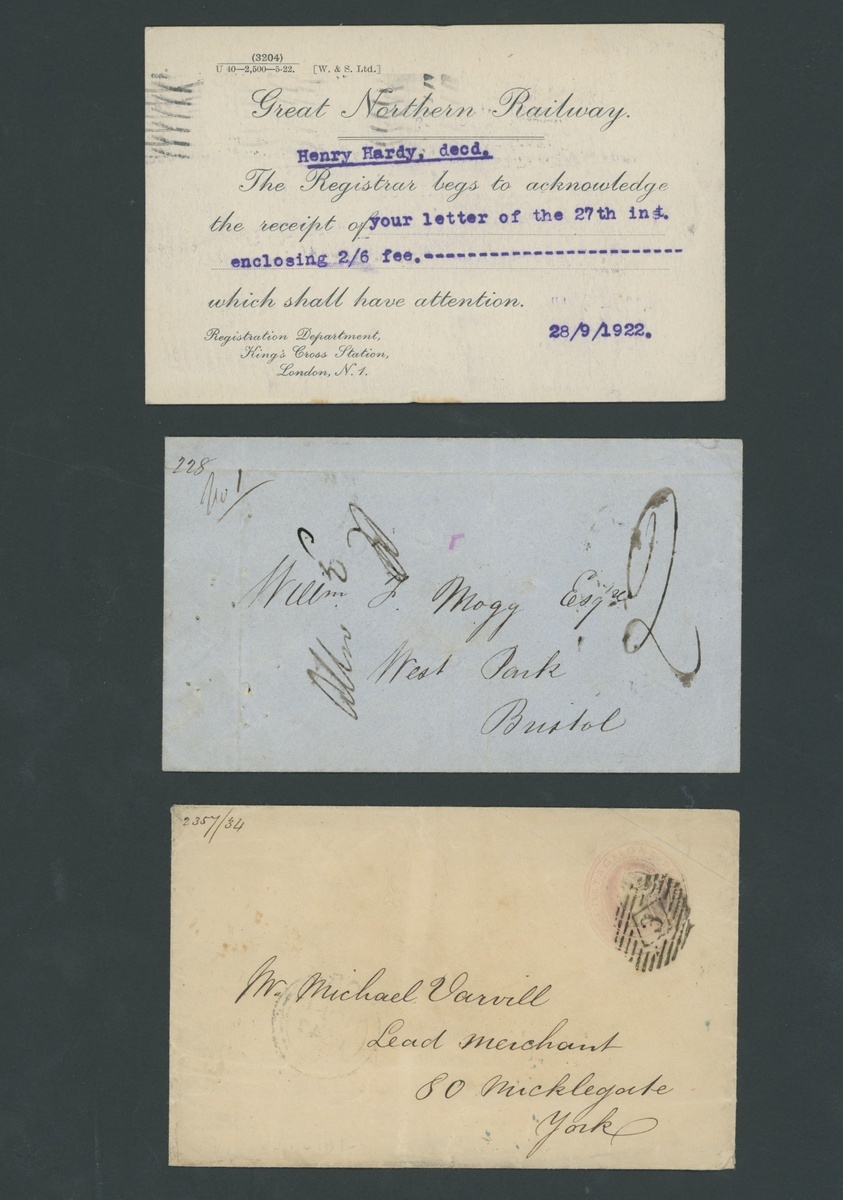 (3204)
U 40—2,500—5-22. [W. & S. Ltd.]
Great Northern Railway.
Henry Hardy, decd.
The Registrar begs to acknowledge
the receipt of your letter of the 27th inst.
enclosing 2/6 fee.--------------------------
which shall have attention.
28/9/1922.
Registration Department,
King's Cross Station,
London, N. 1.
228
No 1
2
Willm J. Mogg Esqre
West Park
Bristol
2357/34
3
Mr. Michael Varvill
Lead Merchant
80 Micklegate
York